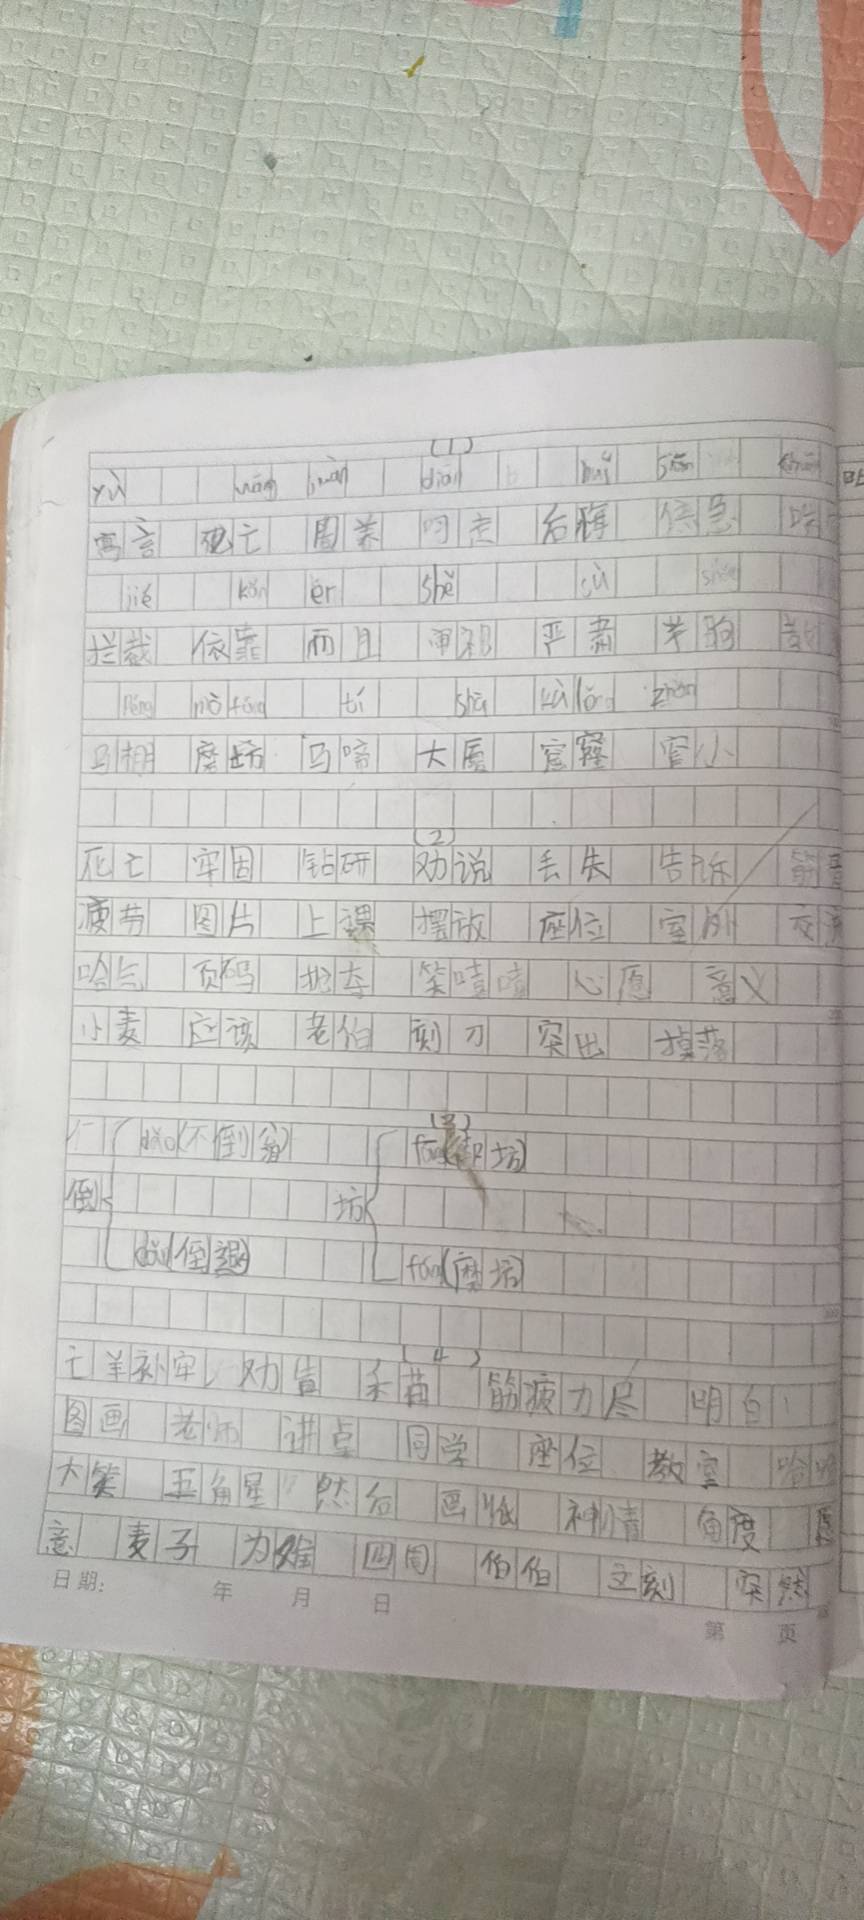 (1)
yù wáng juàn diāo huǐ
寓言 死亡 圈养 叼走 后悔 焦急
jié kào ér shě sù
拦截 依靠 而且 严肃
péng mò fáng tí shà kū lóng zhǎi
马棚 磨坊 马啼 大厦 窟窿 窄小
(2)
死亡 牢固 钻研 劝说 丢失 告诉 筋
疲劳 图片 上课 摆放 座位 室外
哈气 页码 笑嘻嘻 心愿 意义
小麦 应该 老伯 刻刀 突出 掉落
(3)
dǎo(不倒翁) fāng(街坊)
倒 坊
dào(倒退) fáng(磨坊)
(4)
亡羊补牢 劝告 禾苗 筋疲力尽 明白
图画 老师 讲桌 同学 座位 教室 哈哈
大笑 五角星 然后 画 神情 角度 愿
意 麦子 为难 四周 伯伯 立刻 突然
日期: 年 月 日
第 页